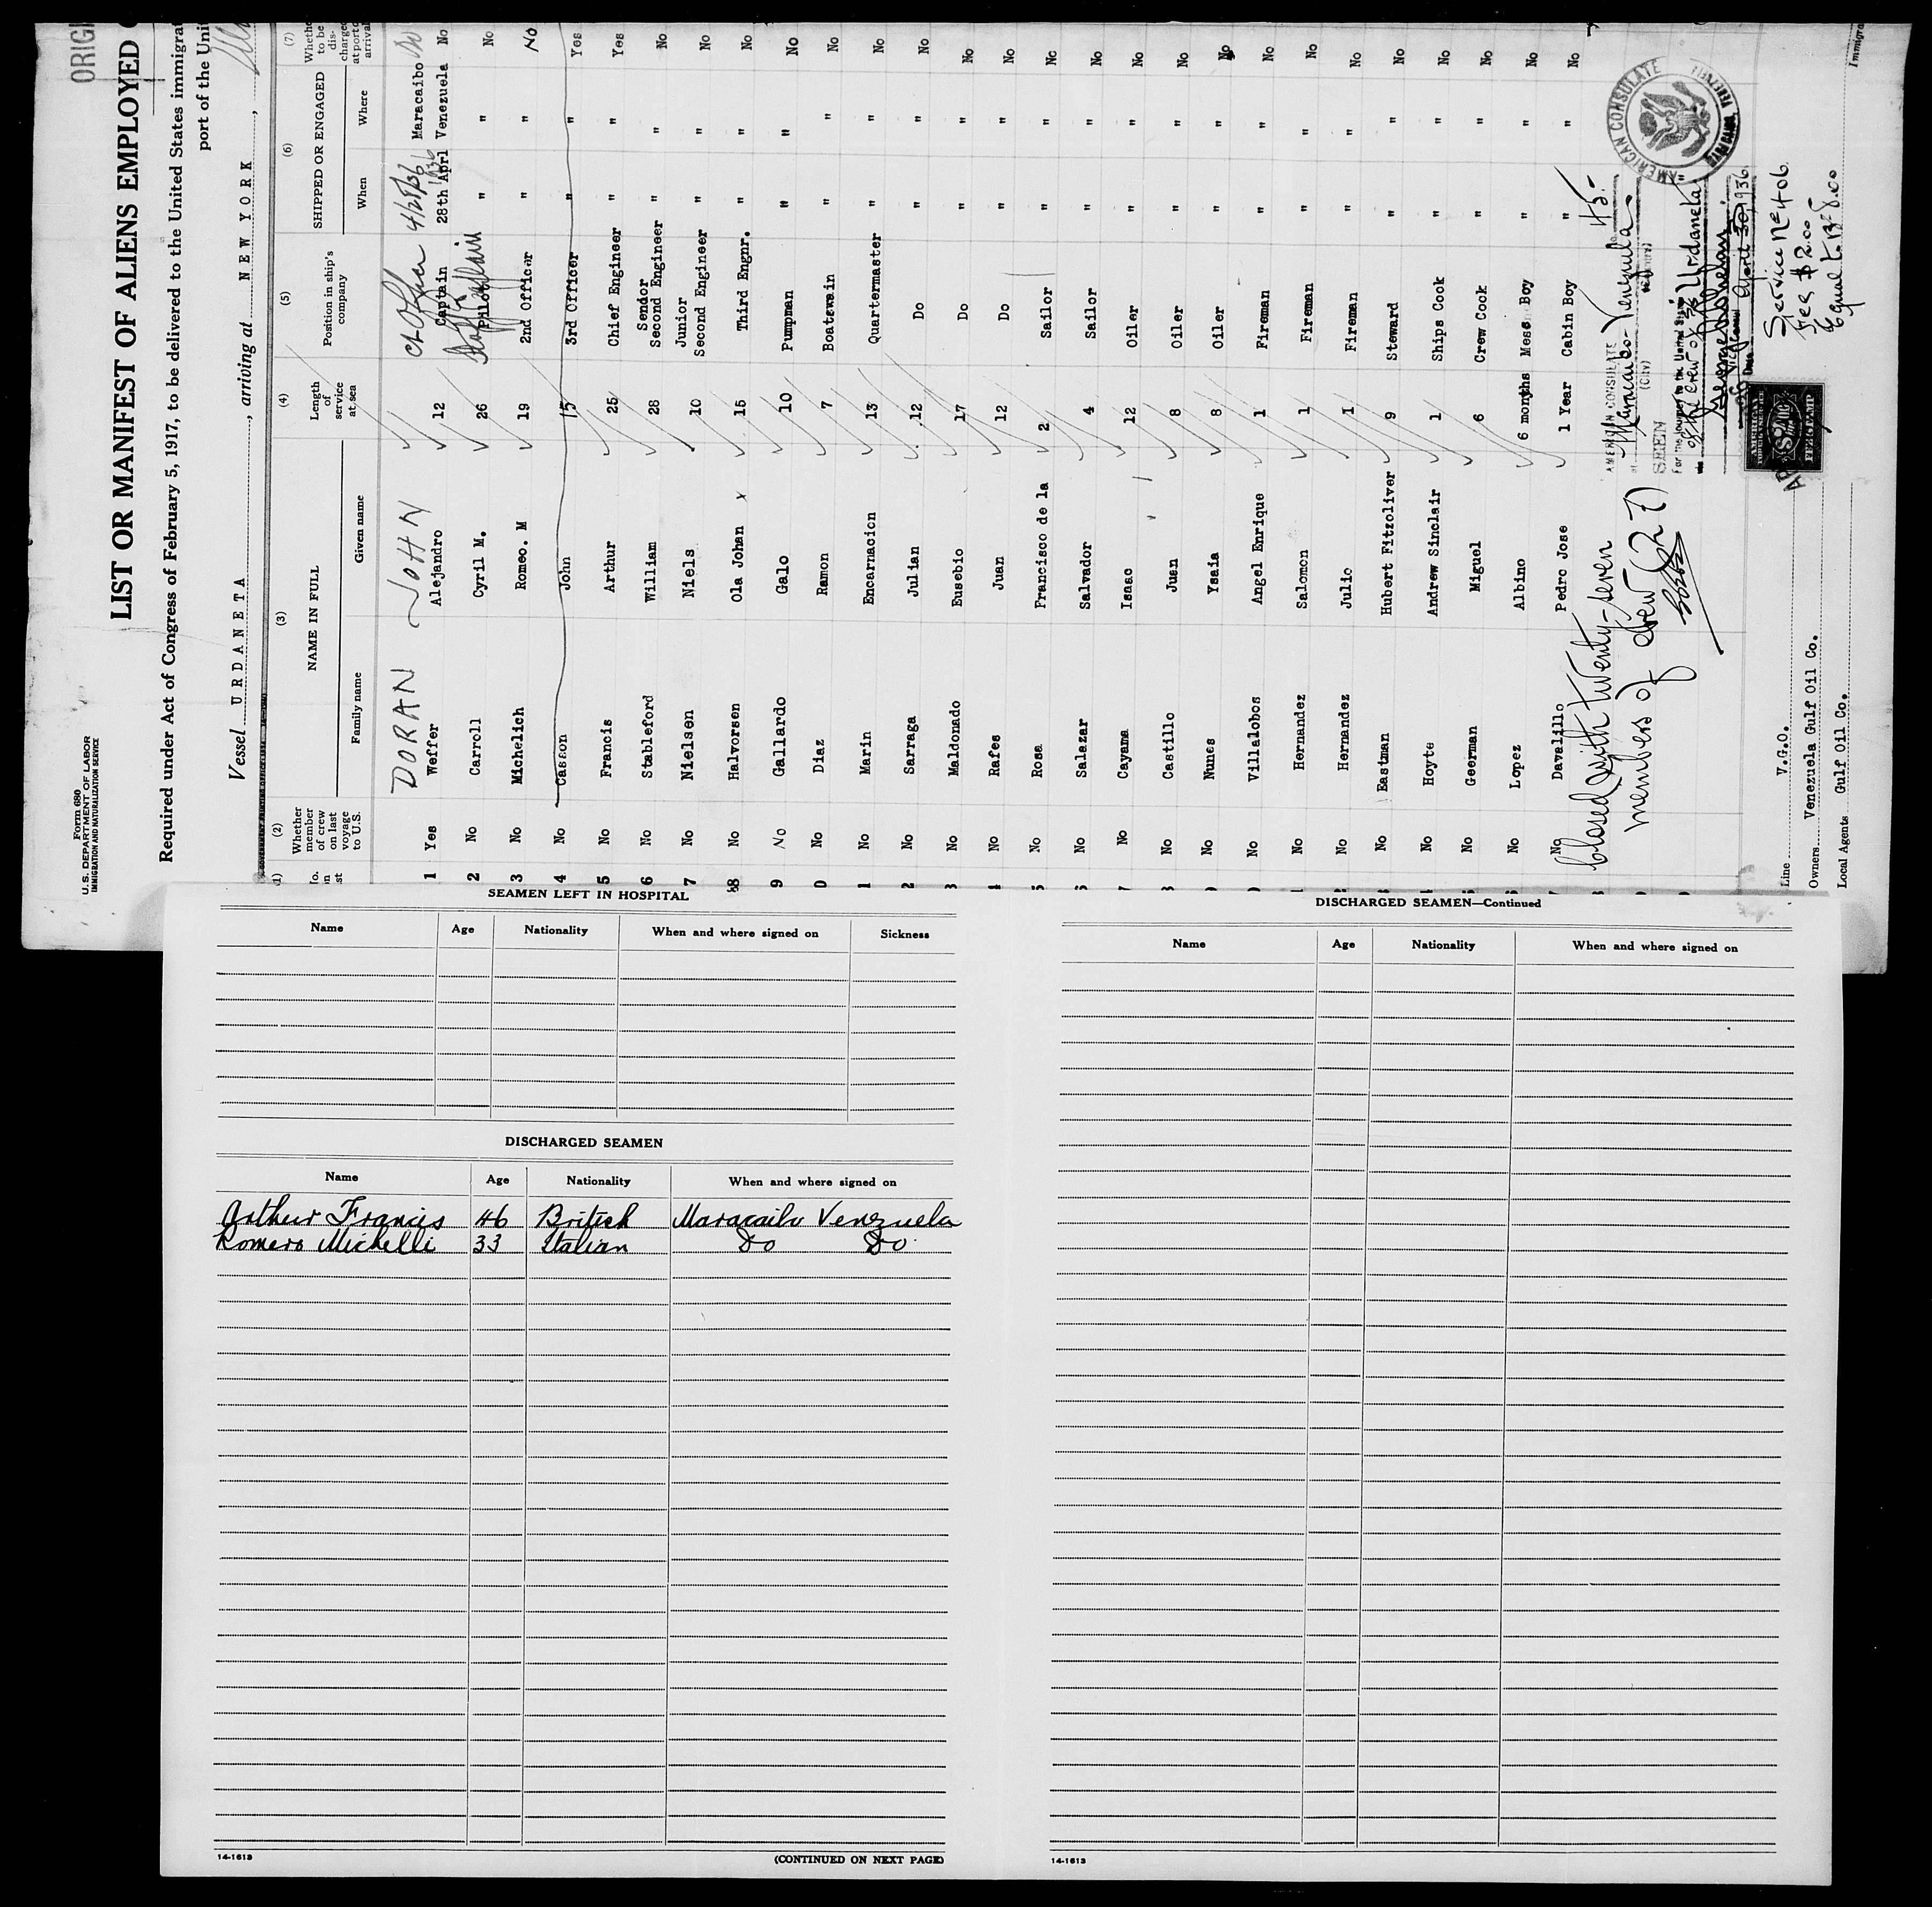 ORIGI
Form 680
U. S. DEPARTMENT OF LABOR
IMMIGRATION AND NATURALIZATION SERVICE
LIST OR MANIFEST OF ALIENS EMPLOYED
Required under Act of Congress of February 5, 1917, to be delivered to the United States immigrat
port of the Unit
Vessel URDANETA, arriving at NEW YORK,
(1) (2) (3) (4) (5) (6) (7)
No. on list Whether member of crew on last voyage to U.S. NAME IN FULL Family name Given name Length of service at sea Position in ship's company SHIPPED OR ENGAGED When Where Whether to be discharged at port of arrival
DORAN JOHN Ch Officer 4/28/36 Maracaibo No
1 Yes Weffer Alejandro 12 Captain 28th Aprl 1936 Venezuela No
2 No Carroll Cyril M. 26 Pilot " " No
3 No Michelich Romeo. M 19 2nd Officer " " No
4 No Casson John 15 3rd Officer " " Yes
5 No Francis Arthur 25 Chief Engineer " " Yes
6 No Stableford William 28 Sendor Second Engineer " " No
7 No Nielsen Niels 10 Junior Second Engineer " " No
8 No Halvorsen Ola Johan x 15 Third Engnr. " " No
9 No Gallardo Galo 10 Pumpman " " No
0 No Diaz Ramon 7 Boatswain " " No
1 No Marin Encarnacion 13 Quartermaster " " No
2 No Sarraga Julian 12 Do " " No
3 No Maldonado Eusebio 17 Do " " No
4 No Rafes Juan 12 Do " " No
5 No Rosa Francisco de la 2 Sailor " " No
6 No Salazar Salvador 4 Sailor " " No
7 No Cayama Isaac 12 Oiler " " No
8 No Castillo Juan 8 Oiler " " No
9 No Nunes Ysaia 8 Oiler " " No
0 No Villalobos Angel Enrique 1 Fireman " " No
1 No Hernandez Salomon 1 Fireman " " No
2 No Hernandez Julio 1 Fireman " " No
3 No Eastman Hubert Fitzoliver 9 Steward " " No
4 No Hoyte Andrew Sinclair 1 Ships Cook " " No
5 No Geerman Miguel 6 Crew Cook " " No
6 No Lopez Albino 6 months Mess Boy " " No
7 No Davalillo Pedro Jose 1 Year Cabin Boy " " No
Closed with twenty-seven
members of crew (27)
AMERICAN CONSULATE
at Maracaibo - Venezuela
(City)
SEEN
For the journey to the United States
of the crew of SS Urdaneta
Date April 30, 1936
AMERICAN CONSULATE
Service Nº 406
Fee $2.00
Equal to Bs 8.00
AMERICAN
FEE STAMP
Line V.G.O.
Owners Venezuela Gulf Oil Co.
Local Agents Gulf Oil Co.
Immigra
SEAMEN LEFT IN HOSPITAL
Name Age Nationality When and where signed on Sickness
DISCHARGED SEAMEN
Name Age Nationality When and where signed on
Arthur Francis 46 British Maracaibo Venezuela
Romero Michelli 33 Italian Do Do
14-1613
(CONTINUED ON NEXT PAGE)
DISCHARGED SEAMEN—Continued
Name Age Nationality When and where signed on
14-1613